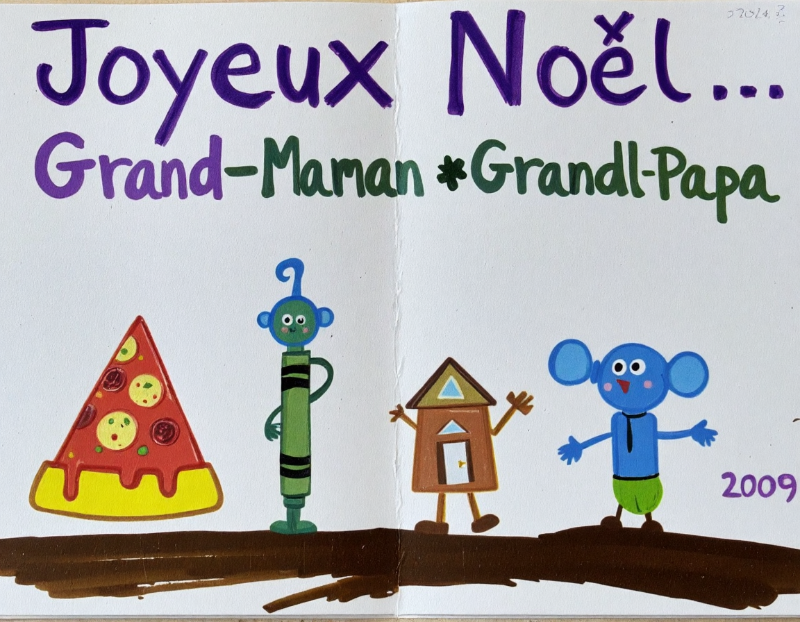 Joyeux Noěl...
Grand-Maman * Grandl-Papa
2009